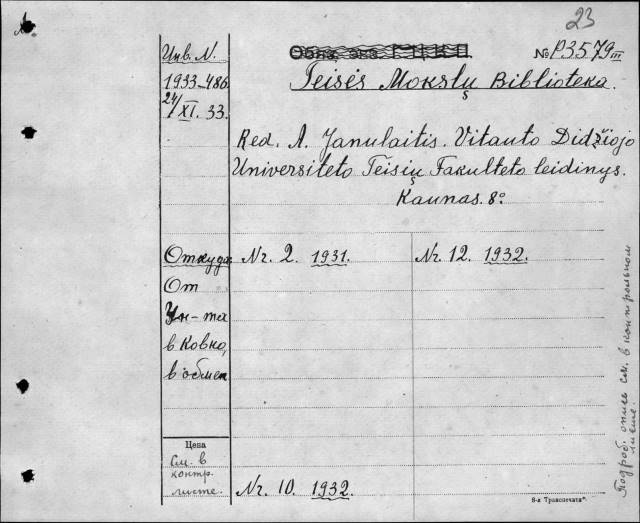 23
Инв. N.
1933-486
24/XI. 33.
№ P3579 III
Teisės Mokslų Biblioteka.
Red. A. Janulaitis. Vitauto Didžiojo
Universiteto Teisių Fakulteto leidinys.
Kaunas. 8°
Откуда:
От
Ун-та
в Ковно,
в обмен
Nr. 2. 1931.
Nr. 12. 1932.
Цена
См. в
контр.
листе.
Nr. 10. 1932.
Подроб. опись см. в контрольном
листе.
8-я Транспечати"